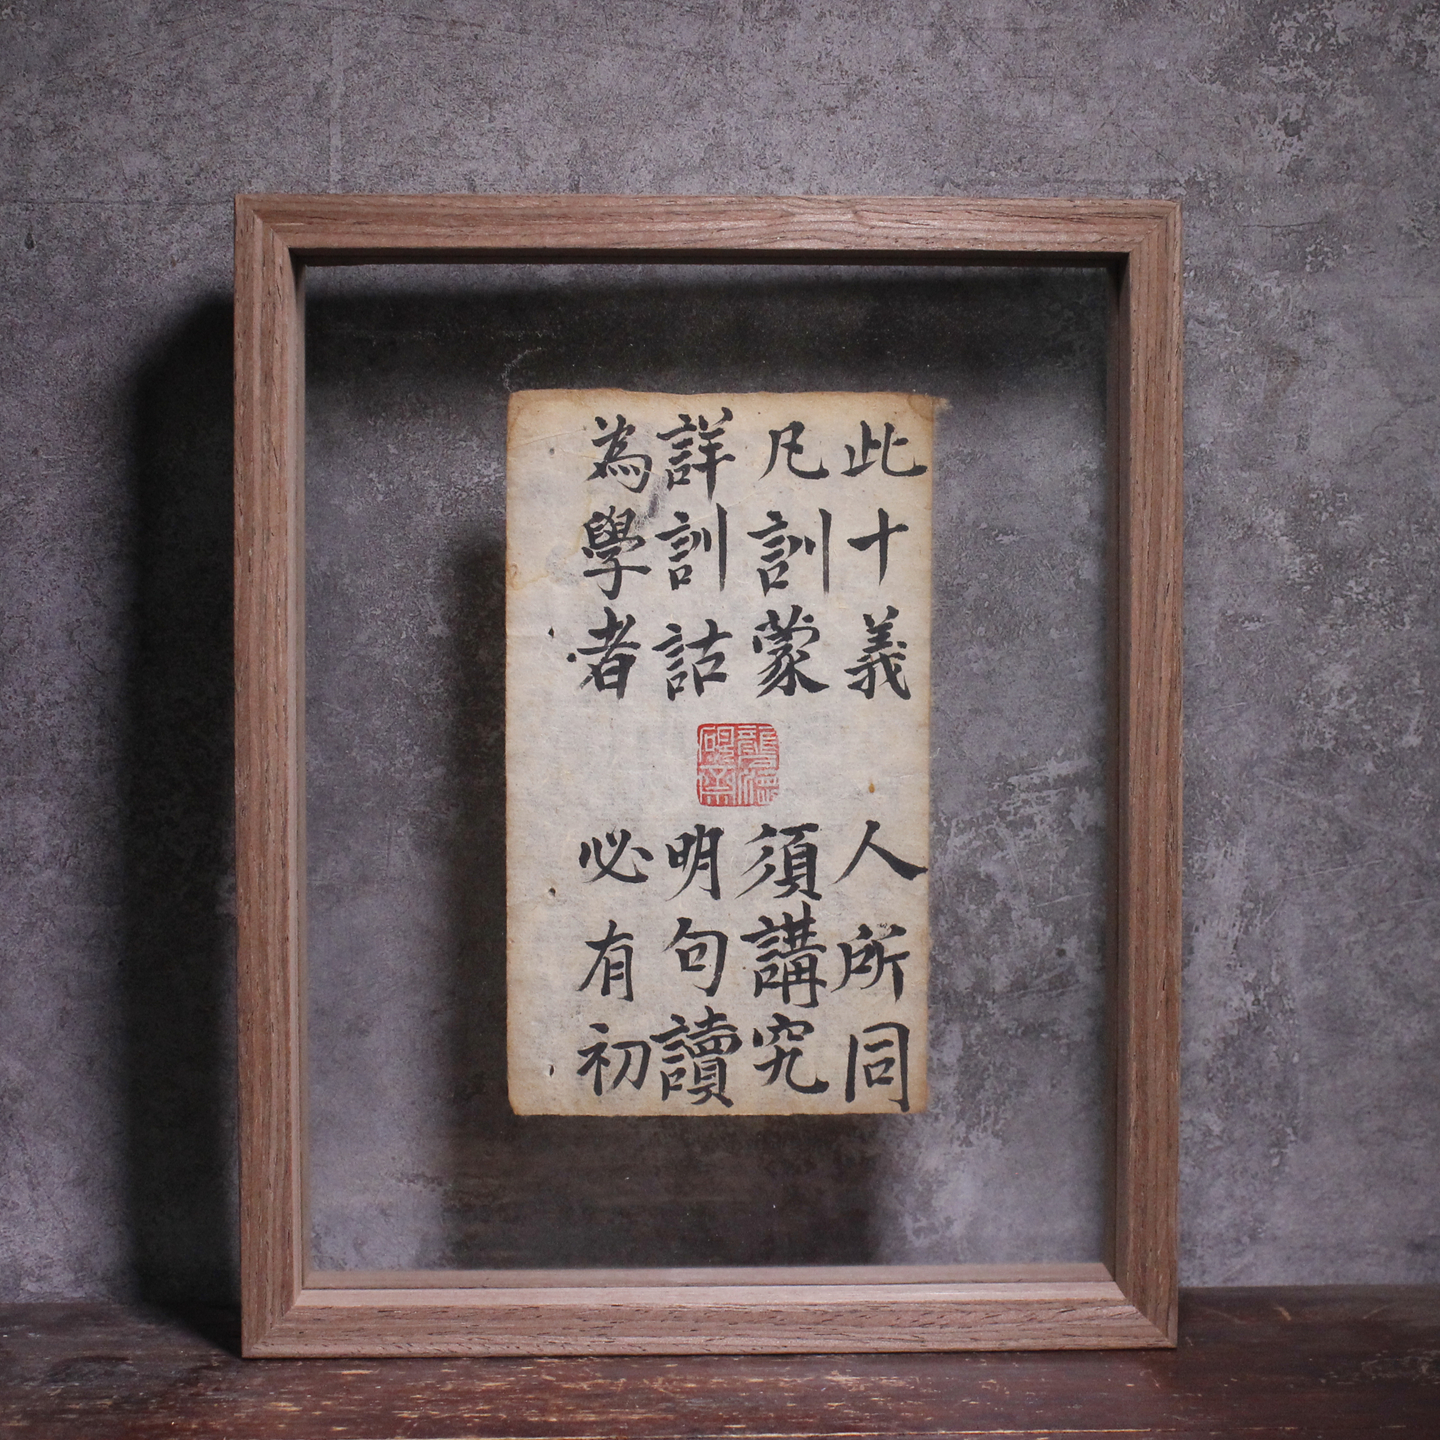 此十義 人所同
凡訓蒙 須講究
詳訓詁 明句讀
為學者 必有初